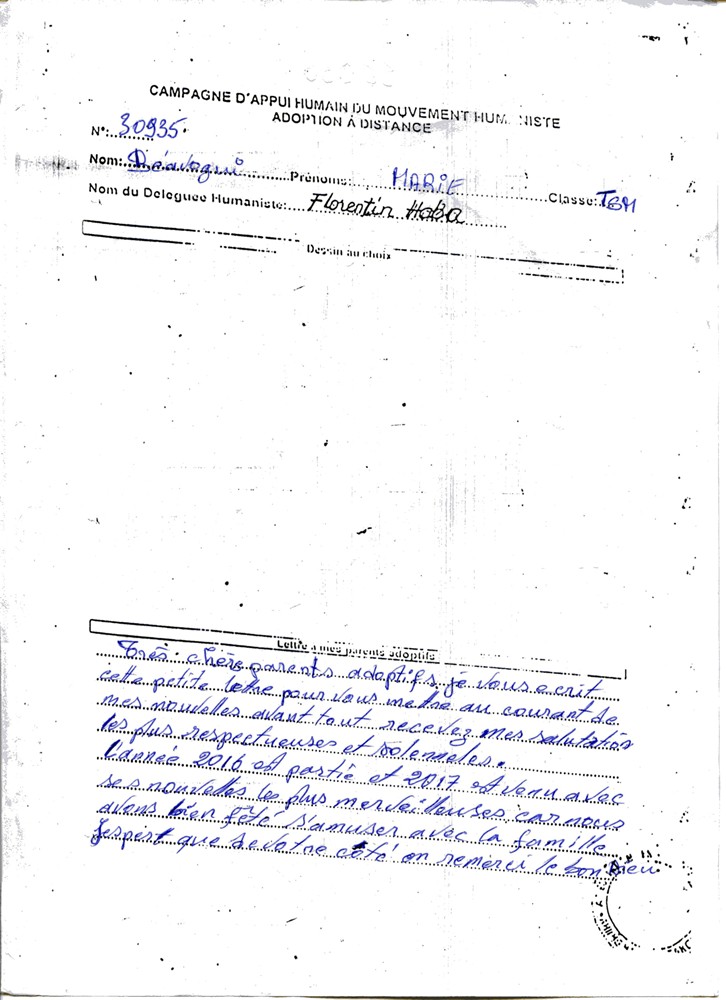 CAMPAGNE D'APPUI HUMAIN DU MOUVEMENT HUMANISTE
ADOPTION À DISTANCE
N°: 30935.
Nom: Béavogui Prénoms: MARIE Classe: TSM
Nom du Deleguée Humaniste: Florentin Haba
Dessin au choix
Lettre a mes parents adoptifs
Très chère parents adoptifs je vous ecrit
cette petite lettre pour vous mettre au courant de
mes nouvelles avant tout recevez mes salutation
les plus respectueuses et solennelles.
l'année 2016 est partie et 2017 est venu avec
ses nouvelles les plus merveilleuses car nous
avons bien fêté s'amuser avec la famille
J'espert que de votre côté on remerci le bon Dieu